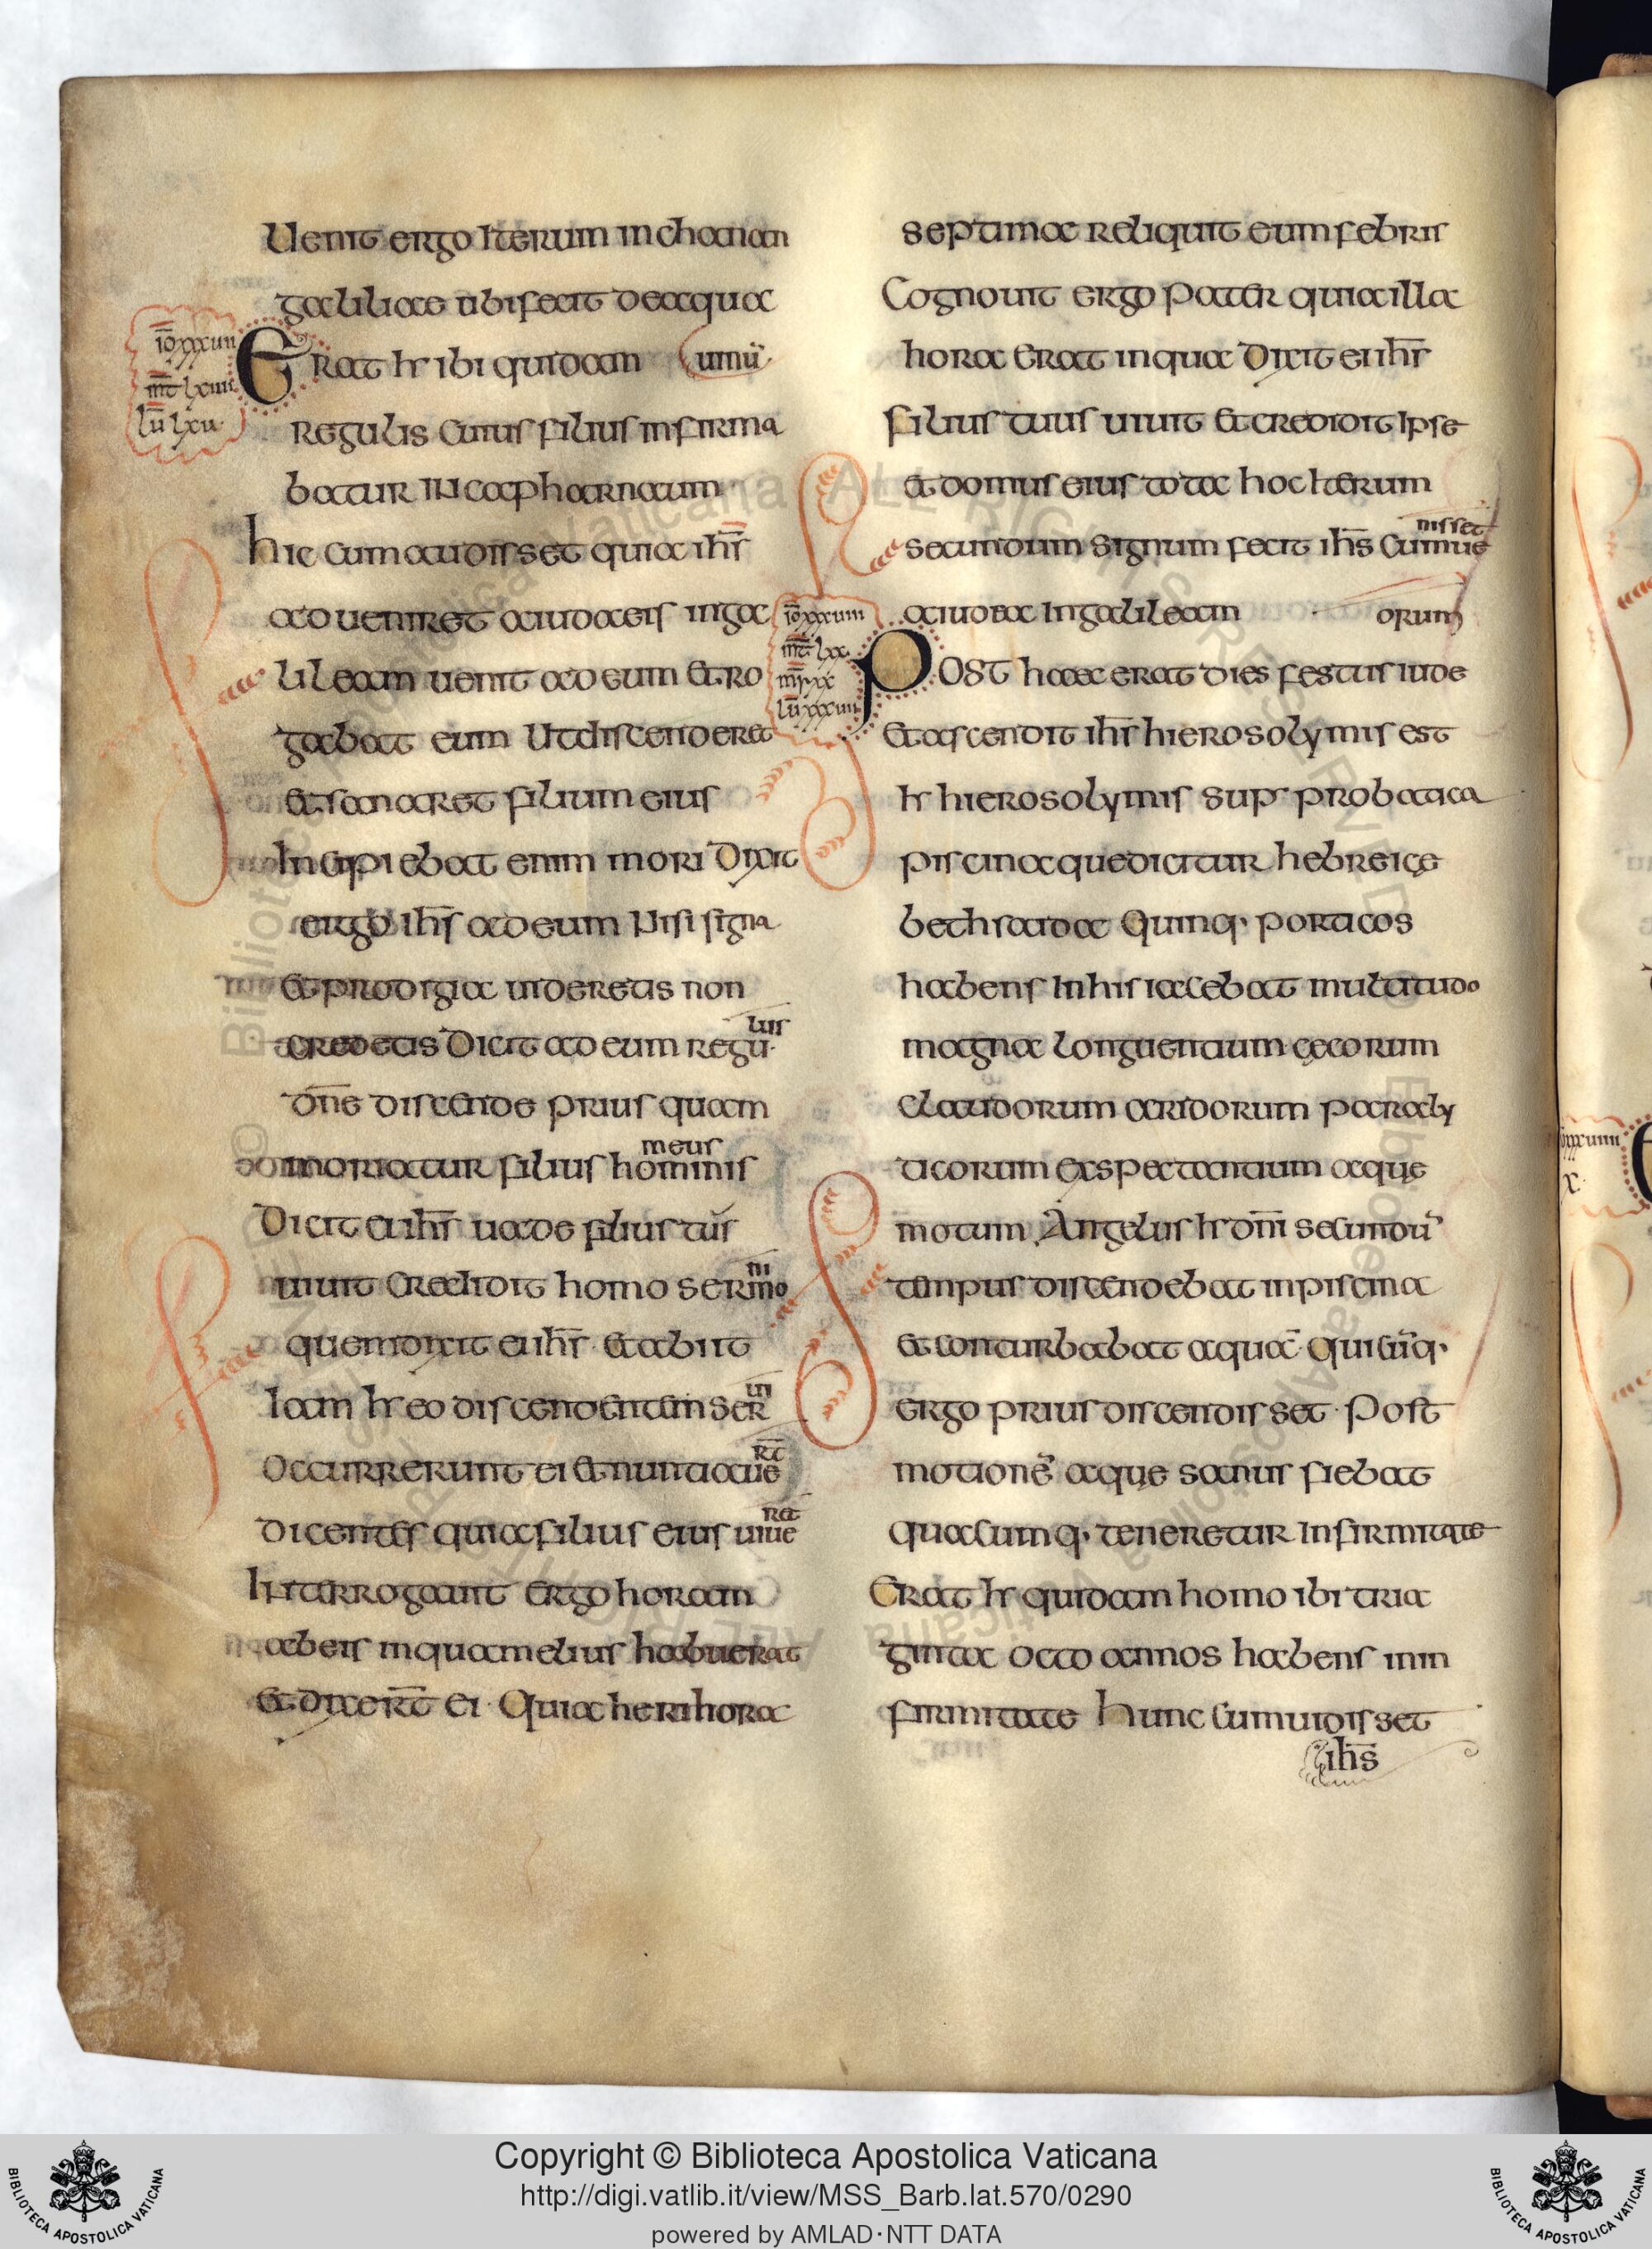 Uenit ergo Iterum in chanan
galiliae ubi fecit de aqua
uinū
Erat hr ibi quidam
Regulis Cuius filius infirma
batur IN capharnaum
hic cum audisset quia ihs̄
adueniret a iudaeis in ga
lileam uenit ad eum et ro
gabat eum Ut discenderet
et sanaret filium eius
Incipiebat enim mori Dixit
ergo ihs̄ ad eum Nisi signa
et prodigia uidereitis non
lus
credetis Dicit ad eum regu
dn̄e discende prius quam
meus
moriatur filius hominis
Dicit ei ihs̄ uade filius tus
ni
uiuit Credidit homo sermo
quem dixit ei ihs̄ et abiit
Iam hr eo discendentem ser
ui
rt̄
Occurrerunt ei et nuntiaue
ret
dicentes quia filius eius uiue
Interrogauit ergo horam
ab eis in qua melius habuerat
et dixert̄ ei Quia heri hora
iō xxxuii
mt̄ lxuiii
lū lxu
septima reliquit eum febris
Cognouit ergo pater quia illa
hora erat in qua Dixit ei ihs̄
filius tuus uiuit et credidit Ipse
et domus eius tota hoc Iterum
nisset
secundum signum fecit ihs̄ Cum ue
a iudea In galileam
iō xxxuiii
mt̄ lxx
mr̄ xx
lū xxxuii
orum
Post haec erat dies festus iude
et ascendit ihs̄ hierosolymis est
hr hierosolymis sup probatica
piscina que dicitur hebreice
bethsaida Quinq· porticos
habens In his iacebat multitudo
magna longuentium cęcorum
claudorum aridorum paraly
ticorum exspectantium aquę
motum Angelus hr dn̄i secundū
tempus discendebat in piscina
et conturbabat aquā Qui cūq·
ergo prius discendisset Post
motionē aque sanus fiebat
quacumq· teneretur Infirmitate
Erat hr quidam homo ibi tria
ginta octo annos habens in in
firmitate hunc cum uidisset
ihs̄
Copyright © Biblioteca Apostolica Vaticana
http://digi.vatlib.it/view/MSS_Barb.lat.570/0290
powered by AMLAD·NTT DATA
BIBLIOTECA APOSTOLICA VATICANA
BIBLIOTECA APOSTOLICA VATICANA